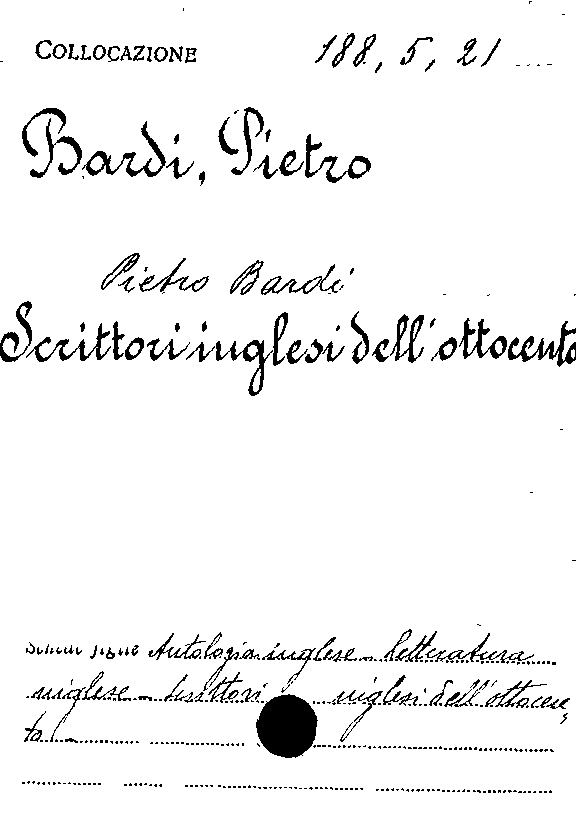 COLLOCAZIONE 188, 5, 21
Bardi, Pietro
Pietro Bardi
Scrittori inglesi dell'ottocento
Antologia inglese - letteratura
inglese - scrittori inglesi dell'ottocen,
to